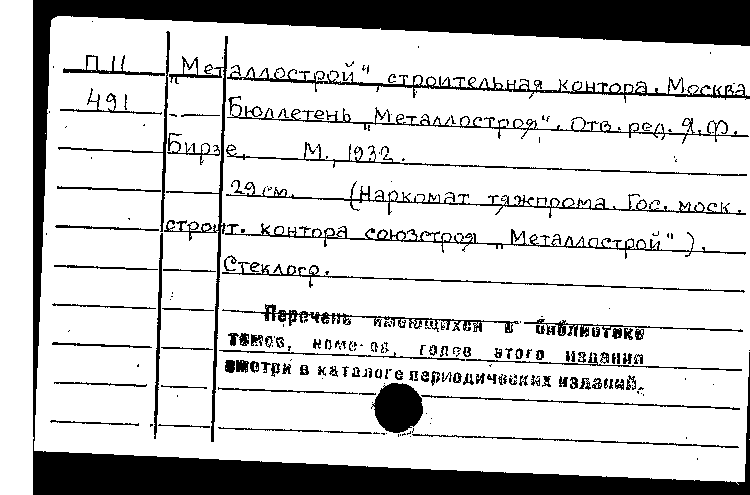 П 11 „Металлострой", строительная контора. Москва
491 Бюллетень „Металлостроя". Отв. ред. Я. Ф.
Бирзе. М., 1932.
29 см. (Наркомат тяжпрома. Гос. моск.
строит. контора союзстроя „Металлострой").
Стеклогр.
Перечень имеющихся в библиотеке
томов, номеров, годов этого издания
смотри в каталоге периодических изданий.